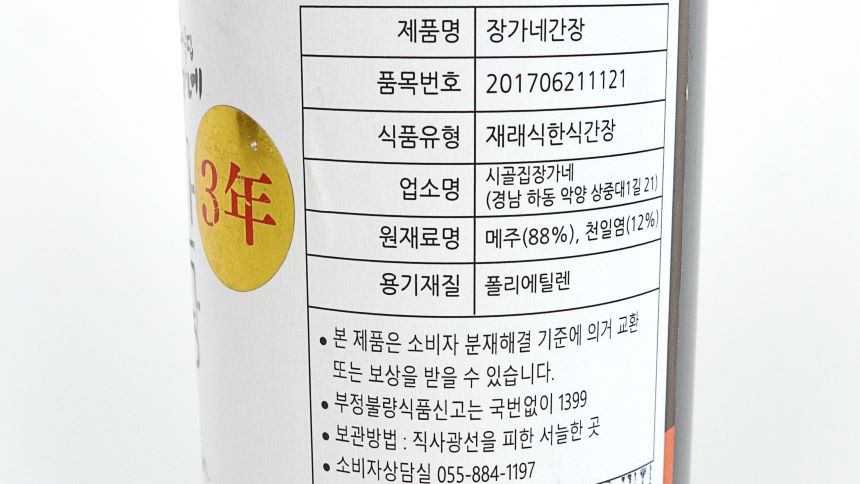 3年
제품명 장가네간장
품목번호 201706211121
식품유형 재래식한식간장
업소명 시골집장가네
(경남 하동 악양 상중대1길 21)
원재료명 메주(88%), 천일염(12%)
용기재질 폴리에틸렌
• 본 제품은 소비자 분재해결 기준에 의거 교환
또는 보상을 받을 수 있습니다.
• 부정불량식품신고는 국번없이 1399
• 보관방법 : 직사광선을 피한 서늘한 곳
• 소비자상담실 055-884-1197